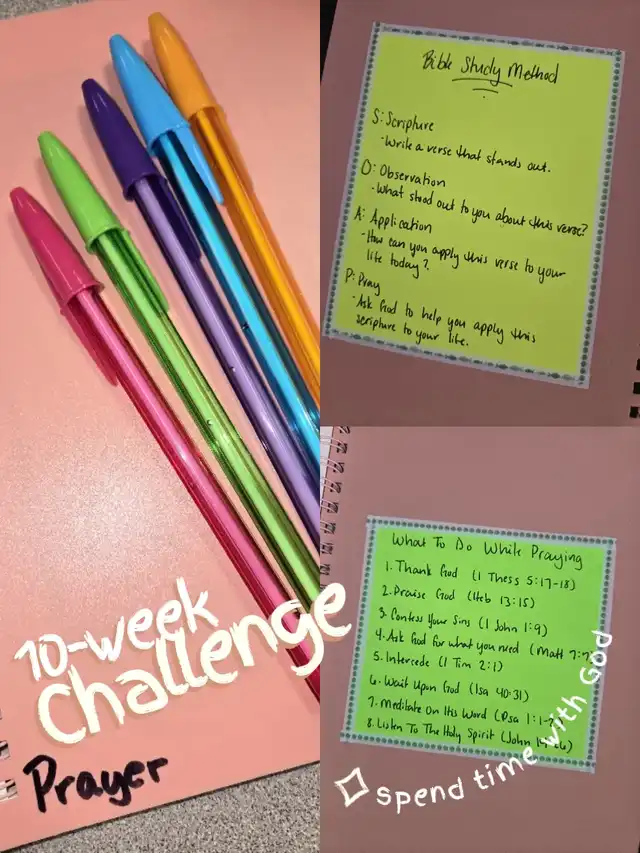 10-week
Challenge
Prayer
Bible Study Method
S: Scripture
- Write a verse that stands out.
O: Observation
- What stood out to you about this verse?
A: Application
- How can you apply this verse to your
life today?
P: Pray
- Ask God to help you apply this
scripture to your life.
What To Do While Praying
1. Thank God (1 Thess 5:17-18)
2. Praise God (Heb 13:15)
3. Confess Your Sins (1 John 1:9)
4. Ask God for what you need (Matt 7:
5. Intercede (1 Tim 2:1)
6. Wait Upon God (Isa 40:31)
7. Meditate On His Word (Psa 1:1-
8. Listen To The Holy Spirit (John
spend time with God